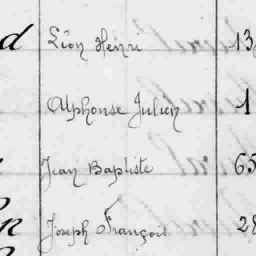 d Léon Henri 13
Alphonse Julien 1
Jean Baptiste 65
n Joseph François 28